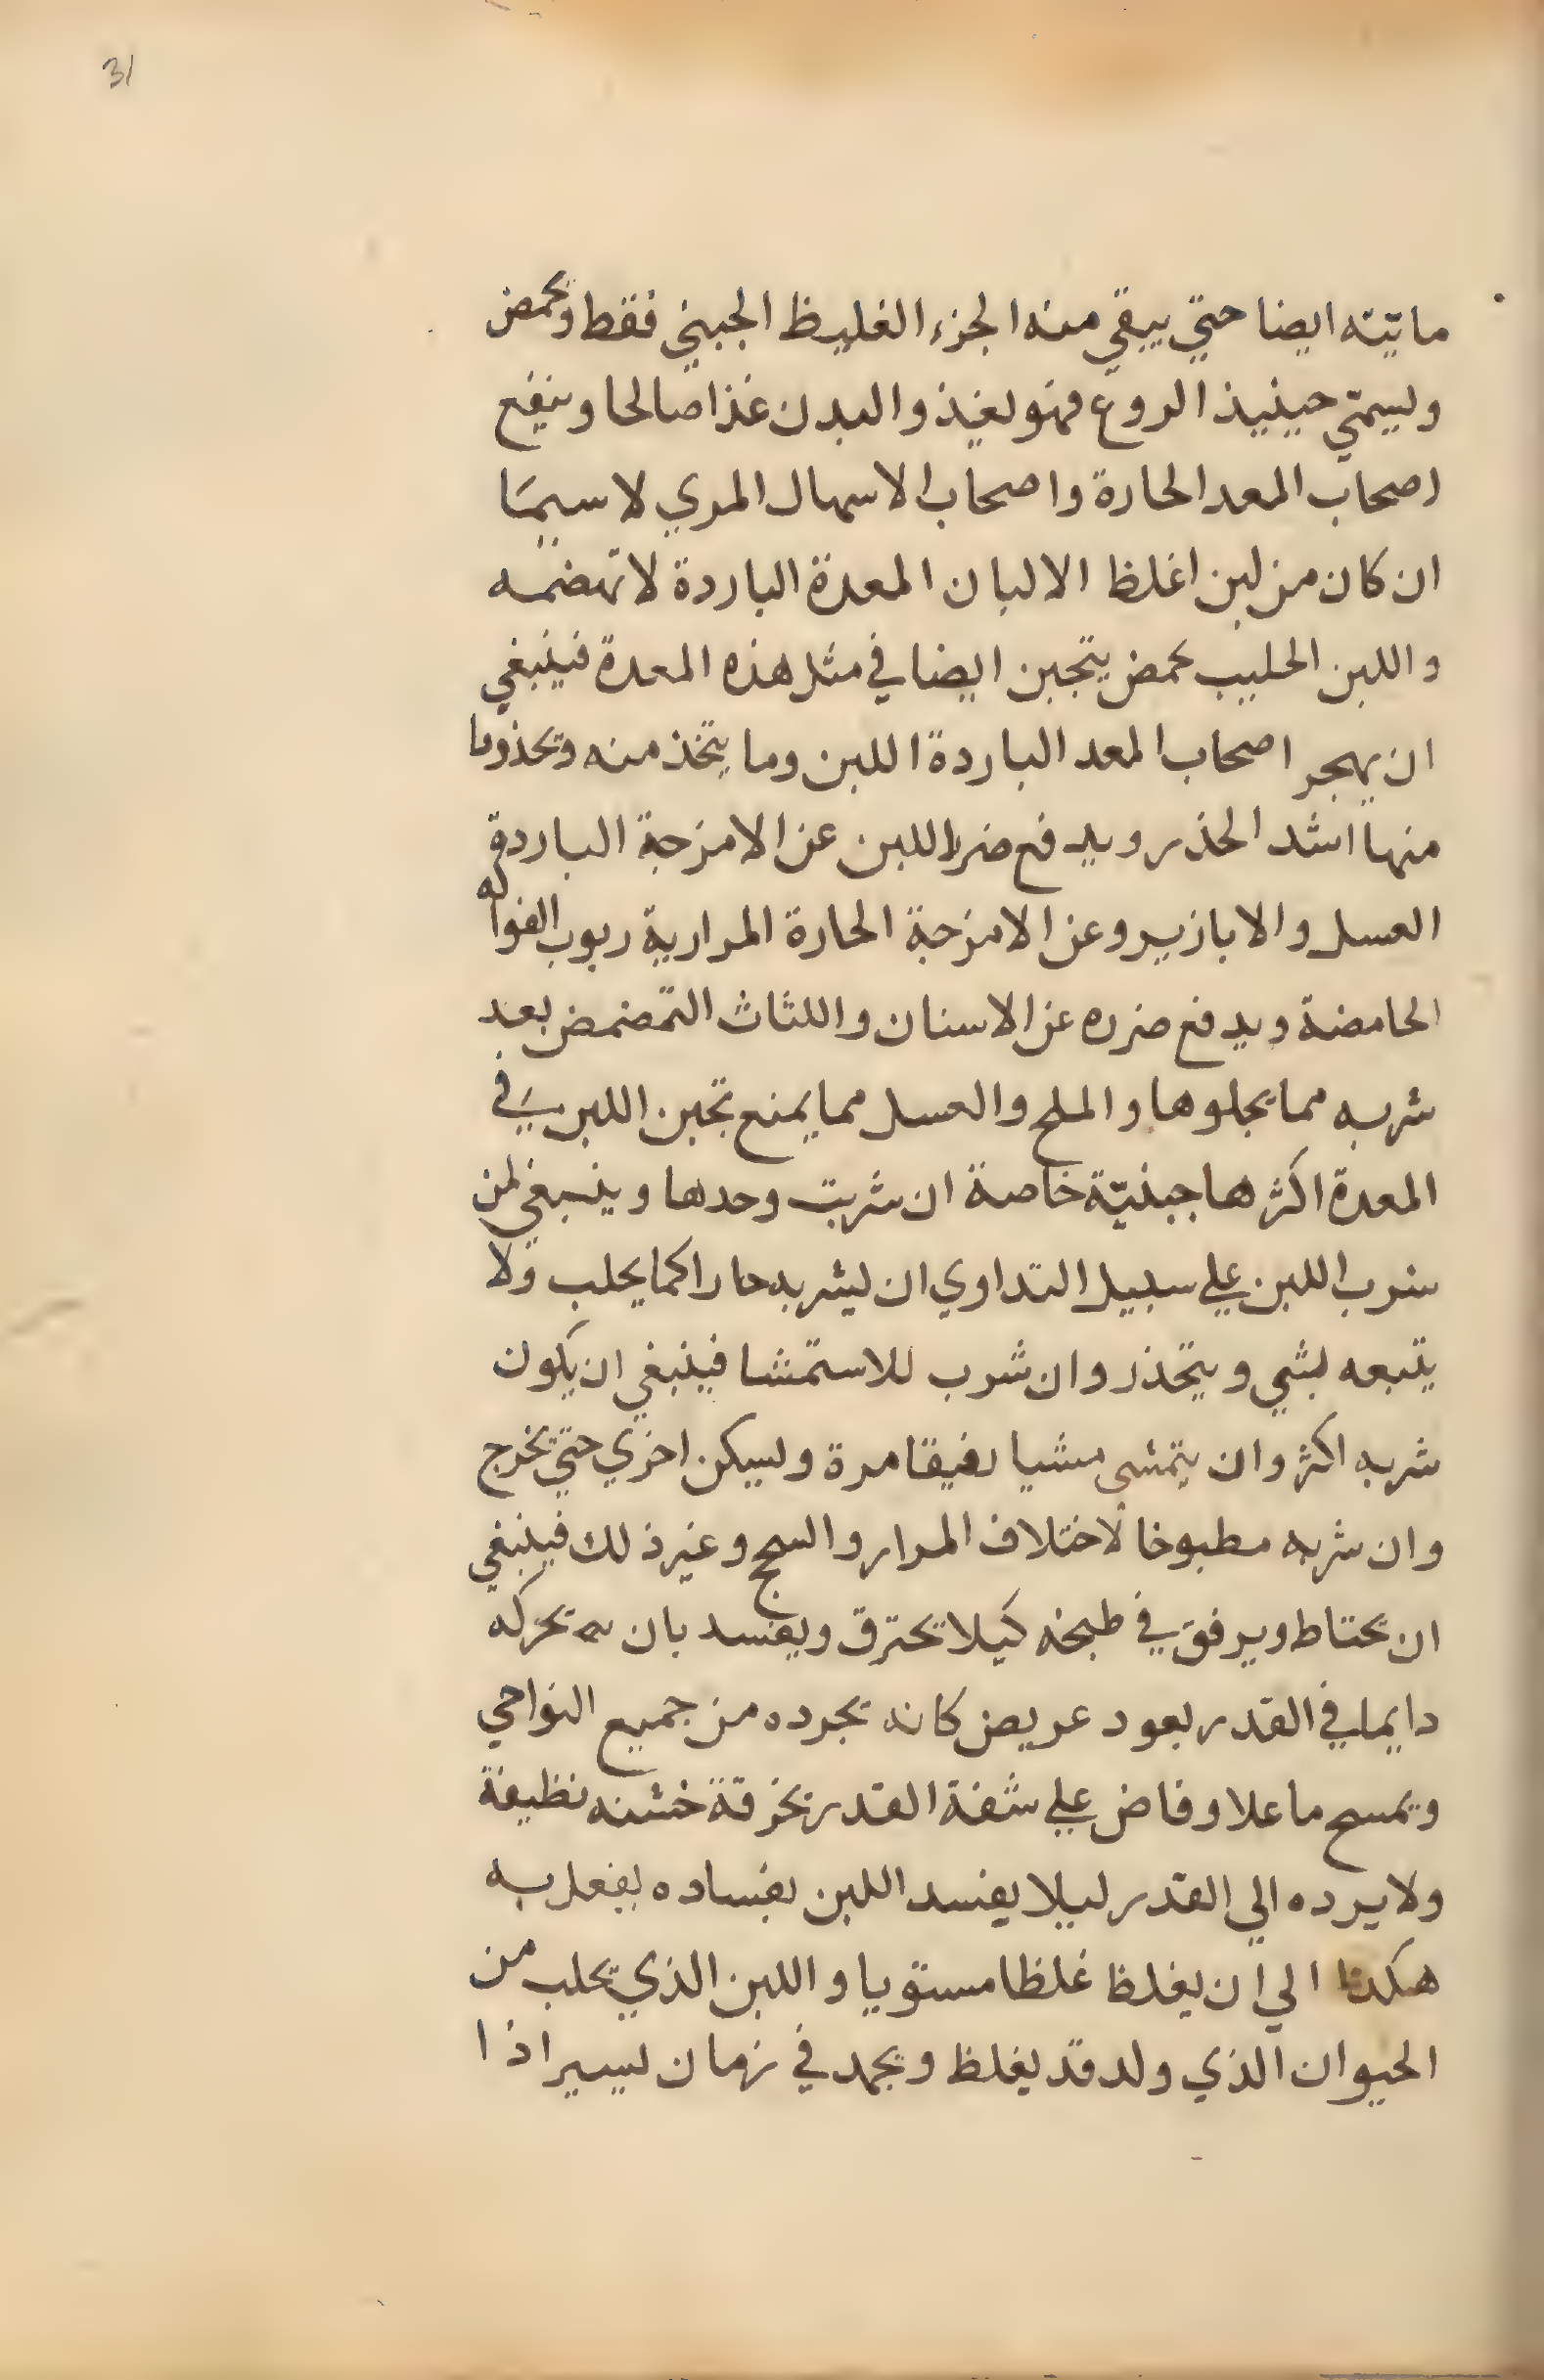 31
مائيته ايضا حتي يبقي منه الجزء الغليظ الجبني فقط ويحمض
ويسمي حينيذ الدوغ فهو يغذوا البدن غذا صالحا وينفع
اصحاب المعد الحارة واصحاب الاسهال المري لا سيما
ان كان من لبن اغلظ الالبان المعدة الباردة لا تهضمه
واللبن الحليب يحمض يتجبن ايضا في مثل هذه المعدة فينبغي
ان يهجر اصحاب المعد الباردة اللبن وما يتخذ منه ويحذوما
منها اشد الحذر ويدفع ضر اللبن عن الامزجة الباردة
العسل والابازير وعن الامزجة الحارة المرارية ربوب الفواله
الحامضة ويدفع ضرره عن الاسنان واللثاث التمضمض بعد
شربه مما يجلوها والملح والعسل مما يمنع تجبن اللبن في
المعدة اكثرها جبنيّة خاصة ان شربت وحدها وينبغي لمن
شرب اللبن علي سبيل التداوي ان يشربه حارا كما يحلب ولا
يتبعه بشي ويتحذر وان شرب للاستمشا فينبغي ان يكون
شربه اكثر وان يتمشي مشيا رفيقا مرة ويسكن اخري حتي يخرج
وان شربه مطبوخا لاختلاف المرار والسحج وغير ذلك فينبغي
ان يحتاط ويرفق في طبخه كيلا يحترق ويفسد بان يحركه
دايما في القدر بعود عريض كانه يجرده من جميع النواحي
ويمسح ما علا وفاض علي شفة القدر بخرقة خشنه نظيفة
ولا يرده الي القدر ليلا يفسد اللبن بفساده يفعل به
هكذا الي ان يغلظ غلظا مستويا واللبن الذي يحلب من
الحيوان الذي ولد قد يغلظ ويجمد في زمان يسير اذا